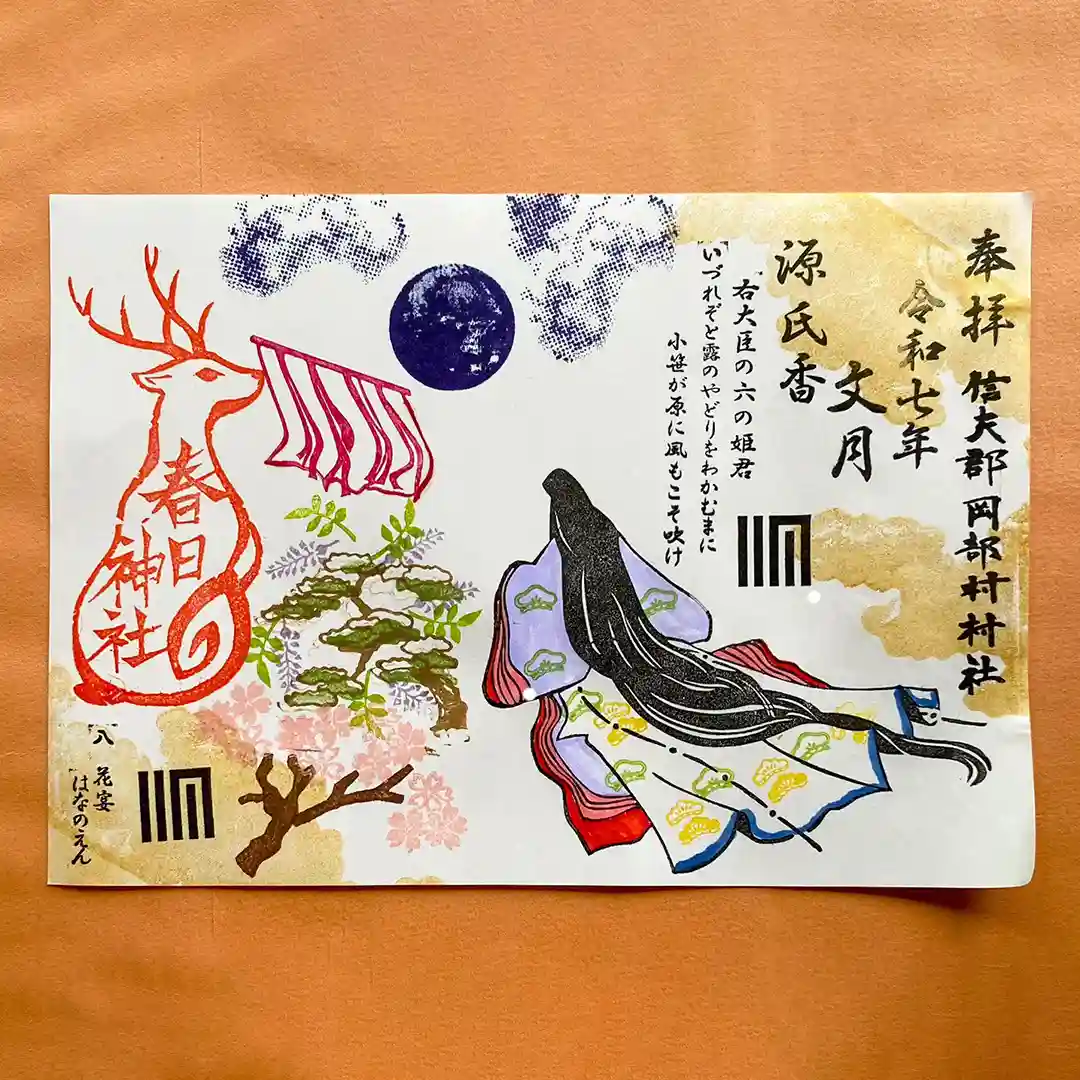 奉拝 信夫郡岡部村村社
令和七年
文月
源氏香
右大臣の六の姫君
いづれぞと露のやどりをわかむまに
小笹が原に風もこそ吹け
春日
神社
八
花宴
はなのえん